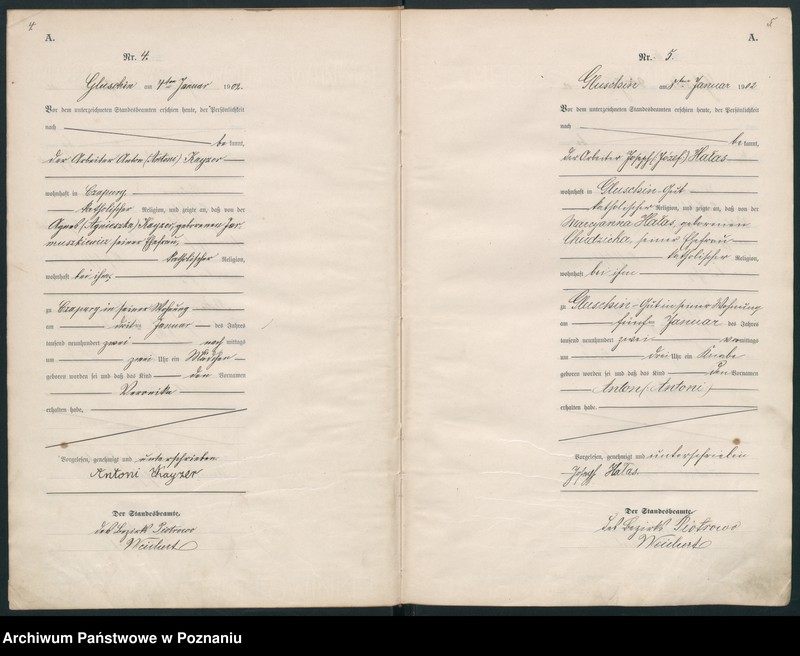 4.
A.
Nr. 4.
Gluschin am 4ten Januar 1902.
Vor dem unterzeichneten Standesbeamten erschien heute, der Persönlichkeit
nach
be kannt,
der Arbeiter Anton (Antoni) Kayzer
wohnhaft in Czapury
katholischer Religion, und zeigte an, daß von der
Agnes (Agnieszka) Kayzer, geborenen Jar
muszkiewicz seiner Ehefrau,
katholischer Religion,
wohnhaft bei ihm,
zu Czapury in seiner Wohnung
am dritten Januar des Jahres
tausend neunhundert zwei nach mittags
um zwei Uhr ein Mädchen
geboren worden sei und daß das Kind den Vornamen
Veronika
erhalten habe,
Vorgelesen, genehmigt und unterschrieben
Antoni Kayzer
Der Standesbeamte
des Bezirks Piotrowo
Weichert
5
A.
Nr. 5.
Gluschin am Januar 1902
Vor dem unterzeichneten Standesbeamten erschien heute, der Persönlichkeit
nach
be kannt,
der Arbeiter Joseph (Józef) Hałas
wohnhaft in Gluschin-Gut
katholischer Religion, und zeigte an, daß von der
Maryanna Hałas, geborenen
Chudzicka, seiner Ehefrau
katholischer Religion,
wohnhaft bei ihm
zu Gluschin-Gut in seiner Wohnung
am fünften Januar des Jahres
tausend neunhundert zwei vormittags
um drei Uhr ein Knabe
geboren worden sei und daß das Kind den Vornamen
Anton (Antoni)
erhalten habe.
Vorgelesen, genehmigt und unterschrieben
Joseph Hałas
Der Standesbeamte
des Bezirks Piotrowo
Weichert
Archiwum Państwowe w Poznaniu